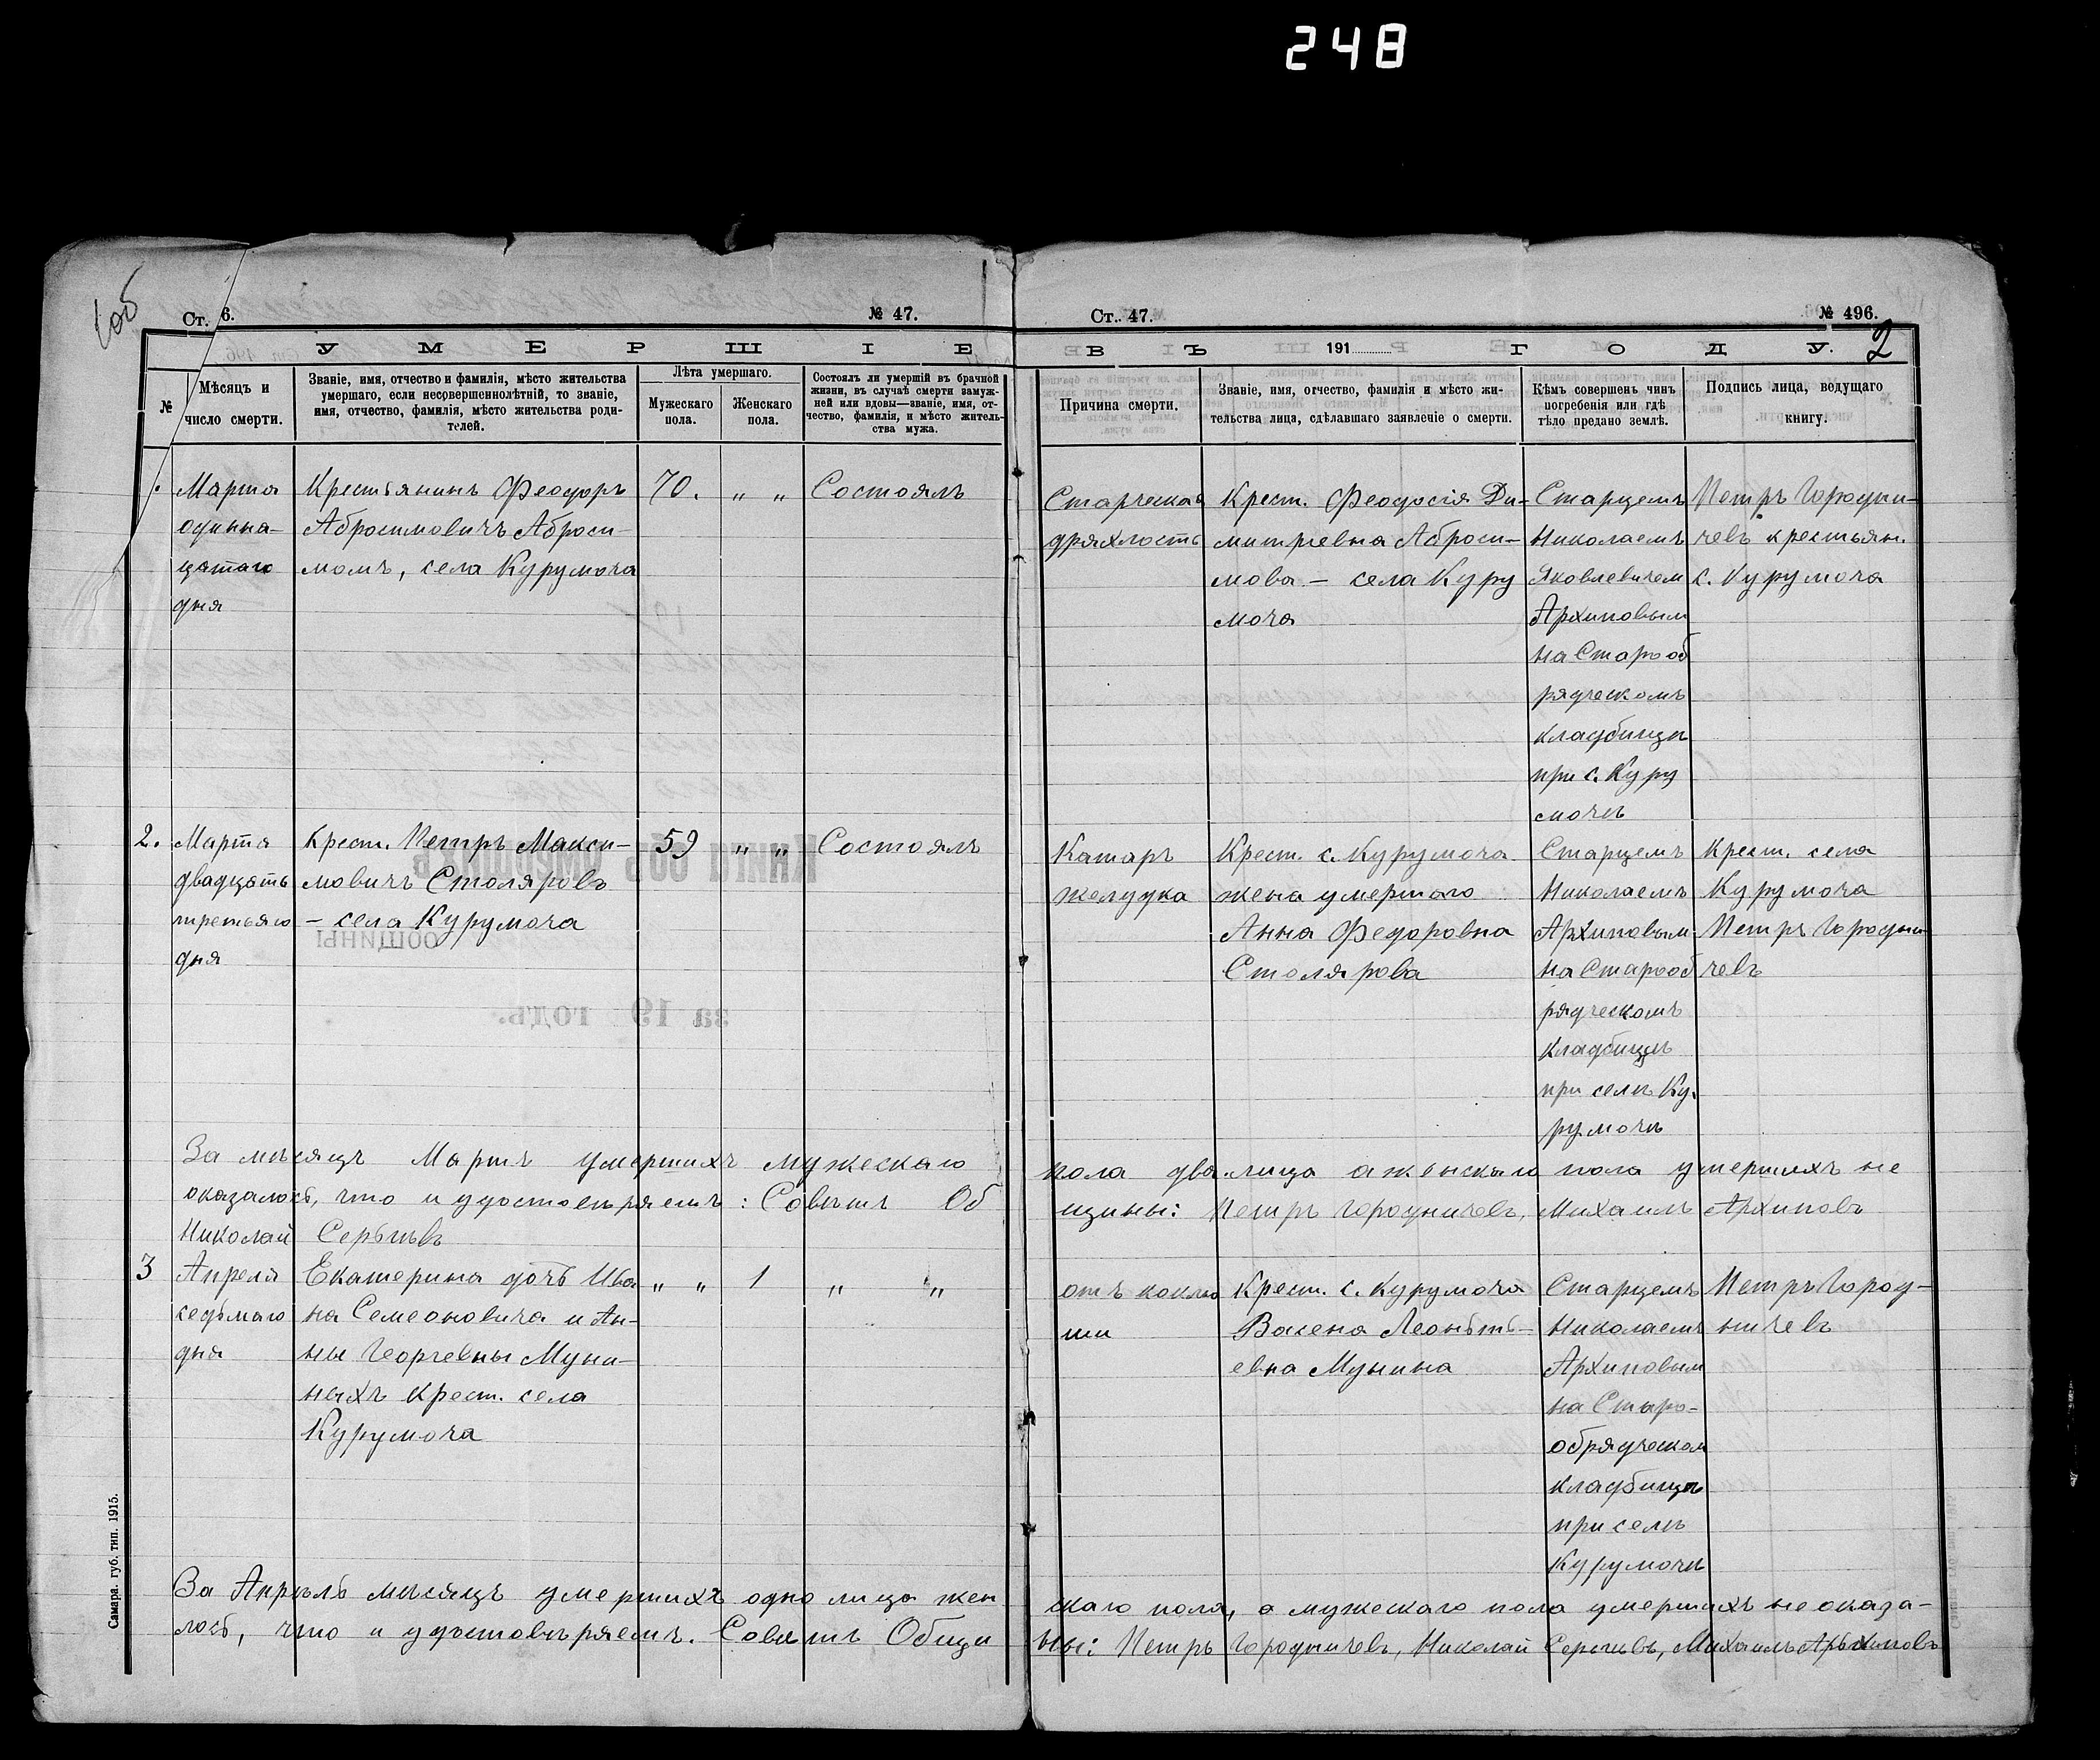 248
1об
Ст. 6. № 47.
УМЕРШІЕ
№
Мѣсяцъ и
число смерти.
Званіе, имя, отчество и фамилія, мѣсто жительства
умершаго, если несовершеннолѣтній, то званіе,
имя, отчество, фамилія, мѣсто жительства роди-
телей.
Лѣта умершаго.
Мужескаго
пола.
Женскаго
пола.
Состоялъ ли умершій въ брачной
жизни, въ случаѣ смерти замуж-
ней или вдовы—званіе, имя, от-
чество, фамилія, и мѣсто житель-
ства мужа.
Ст. 47. № 496.
ВЪ 191 ГОДУ. 2
Причина смерти.
Званіе, имя, отчество, фамилія и мѣсто жи-
тельства лица, сдѣлавшаго заявленіе о смерти.
Кѣмъ совершенъ чинъ
погребенія или гдѣ
тѣло предано землѣ.
Подпись лица, ведущаго
книгу.
Марта
одинна-
цатаго
дня
Крестьянинъ Феодоръ
Абросимовичъ Аброси-
момъ, села Курумоча
70. „ „ Состоялъ
Старческая
дряхлость
Крест. Феодосія Ди-
митріевна Аброси-
мова — села Куру
моча
Старцемъ
Николаемъ
Яковлевичем
Архиповым
на Старооб
рядческомъ
кладбищѣ
при с. Куру
мочѣ
Петръ Городни-
чевъ крестьян.
с. Курумоча
2.
Марта
двадцать
третьяго
дня
Крест. Петръ Макси-
мовичъ Столяровъ
— села Курумоча
59 „ „ Состоялъ
Катаръ
желудка
Крест. с. Курумоча
жена умершаго
Анна Федоровна
Столярова
Старцемъ
Николаемъ
Архиповым
на Старооб
рядческомъ
кладбищѣ
при селѣ Ку.
румочѣ
Крест. села
Курумоча
Петръ Городни
чевъ
За мѣсяцъ Мартъ умершихъ мужескаго пола два лица а женскаго пола умершихъ не
оказалось, что и удостовѣряемъ: Совѣтъ Об щины: Петръ Городничевъ, Михаилъ Архиповъ
Николай
3
Апреля
седьмаго
дня
Екатерина дочь Ива
на Семеоновича и Ан-
ны Георгевны Муни-
ныхъ крест. села
Курумоча
„ „ 1 „ „
отъ коклю
ши
Крест. с. Курумоча
Васена Леоньть-
евна Мунина
Старцемъ
Николаемъ
Архиповым
на Старо-
обрядческом
кладбищѣ
при селѣ
Курумочѣ
Петръ Город-
ничевъ
За Апрѣль мѣсяцъ умершихъ одно лицо жен скаго пола, а мужескаго пола умершихъ не оказа-
лось, что и удостовѣряемъ. Совѣтъ Общи ны: Петръ Городничевъ, Николай Михаилъ Архиповъ
Самара. губ. тип. 1915.